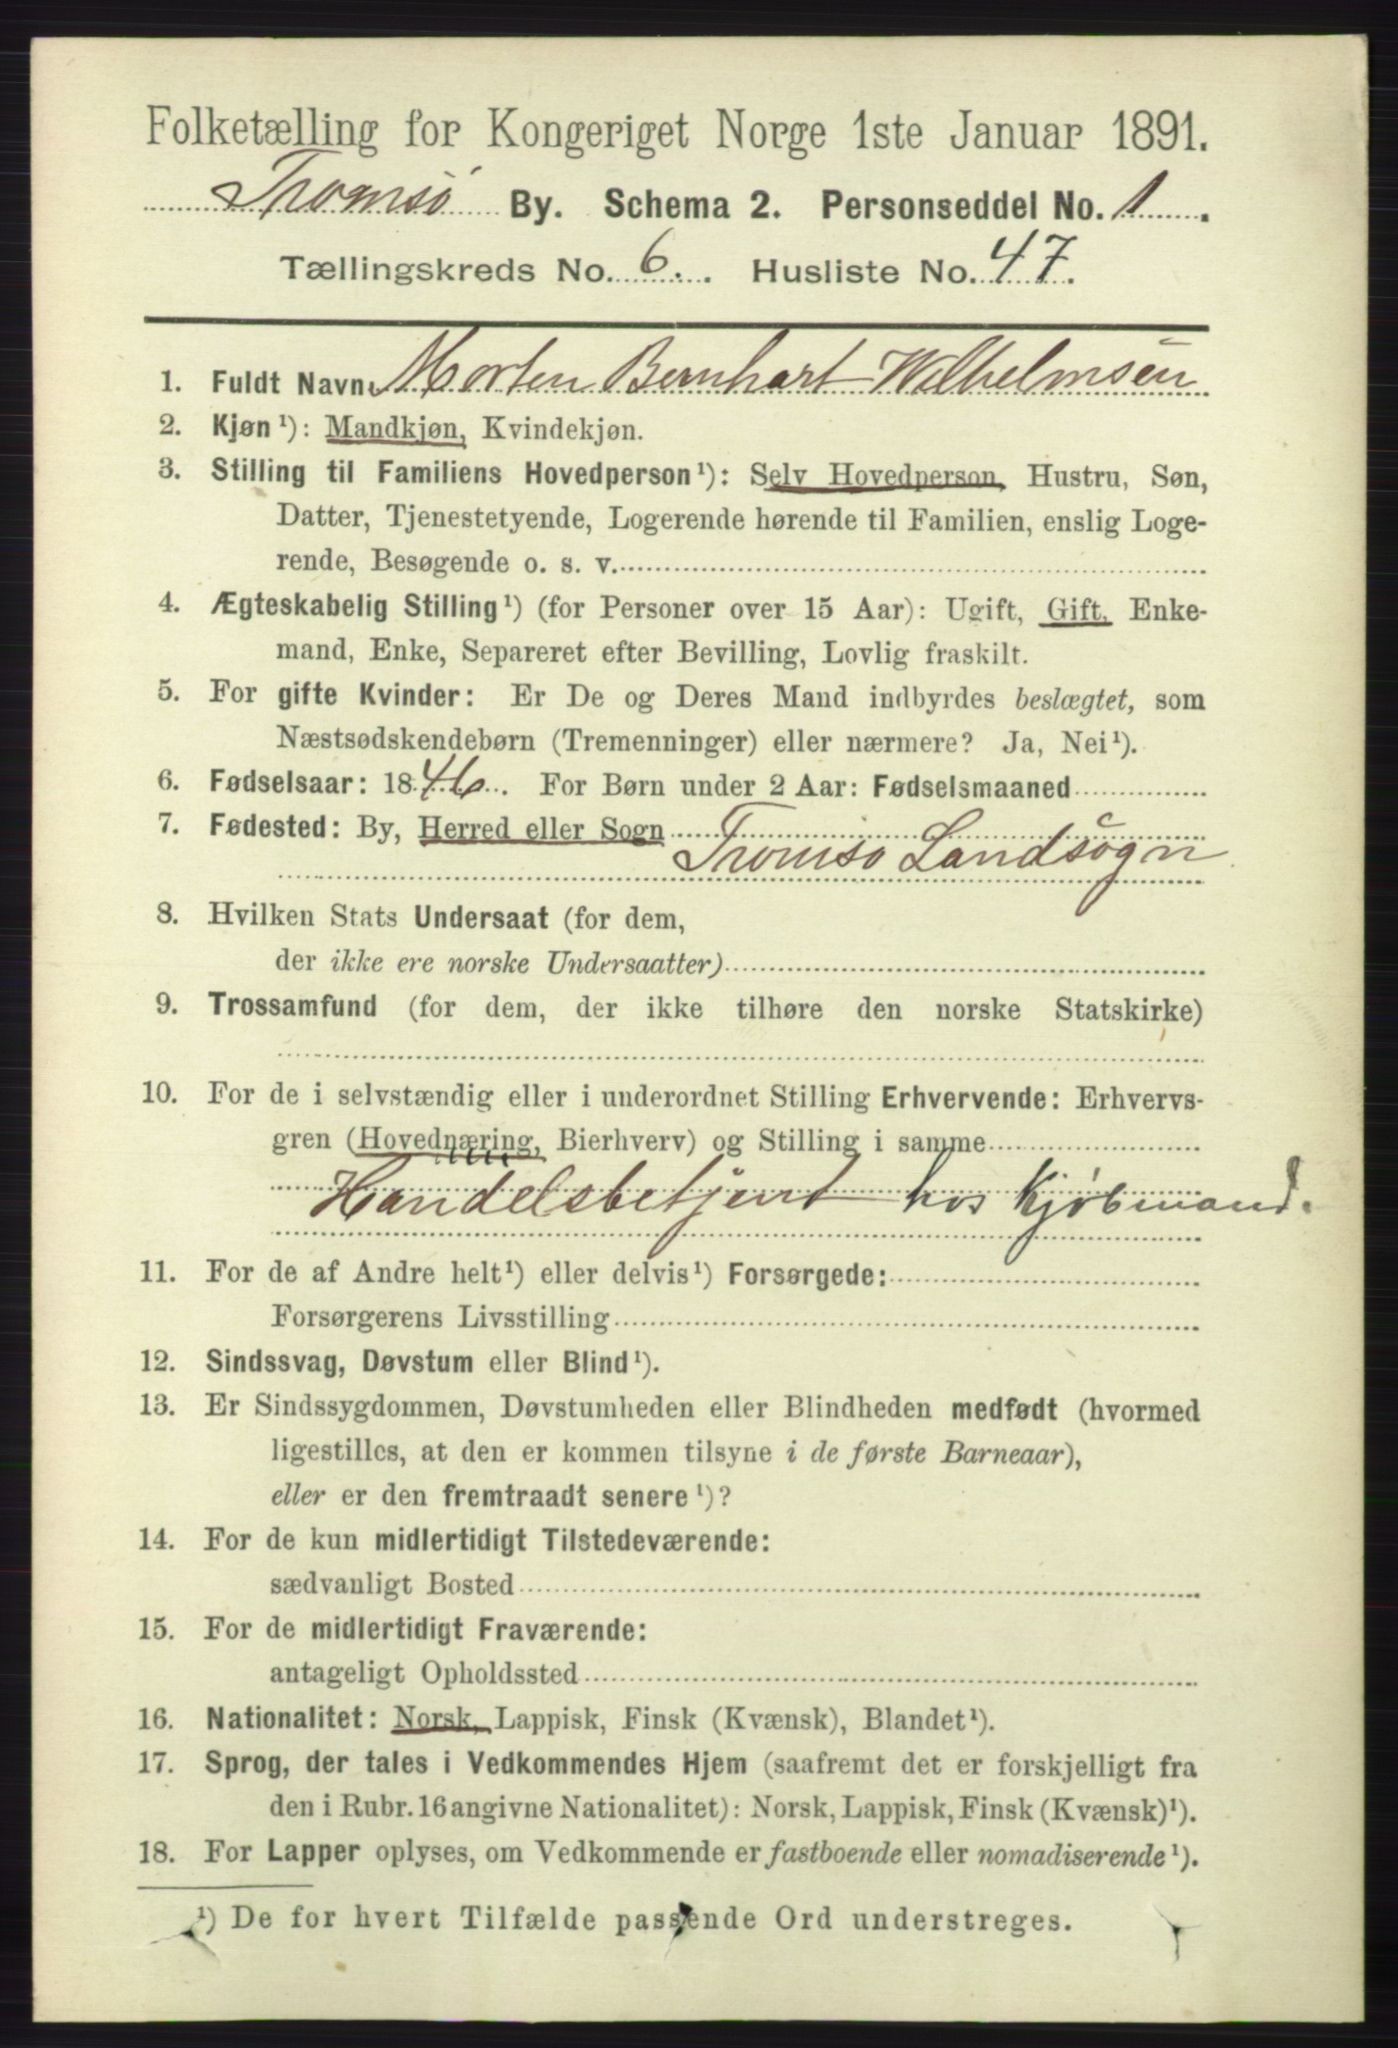 Folketælling for Kongeriget Norge 1ste Januar 1891.
Tromsø By. Schema 2. Personseddel No. 1.
Tællingskreds No. 6. Husliste No. 47.
1. Fuldt Navn: Morten Bernhart Wilhelmsen
2. Kjøn¹): Mandkjøn, Kvindekjøn.
3. Stilling til Familiens Hovedperson¹): Selv Hovedperson, Hustru, Søn,
Datter, Tjenestetyende, Logerende hørende til Familien, enslig Loge-
rende, Besøgende o. s. v.
4. Ægteskabelig Stilling¹) (for Personer over 15 Aar): Ugift, Gift, Enke-
mand, Enke, Separeret efter Bevilling, Lovlig fraskilt.
5. For gifte Kvinder: Er De og Deres Mand indbyrdes beslægtet, som
Næstsødskendebørn (Tremenninger) eller nærmere? Ja, Nei¹).
6. Fødselsaar: 1846. For Børn under 2 Aar: Fødselsmaaned
7. Fødested: By, Herred eller Sogn
Tromsø Landsogn
8. Hvilken Stats Undersaat (for dem,
der ikke ere norske Undersaatter)
9. Trossamfund (for dem, der ikke tilhøre den norske Statskirke)
10. For de i selvstændig eller i underordnet Stilling Erhvervende: Erhvervs-
gren (Hovednæring, Bierhverv) og Stilling i samme
Handelsbetjent hos Kjøbmand.
11. For de af Andre helt¹) eller delvis¹) Forsørgede:
Forsørgerens Livsstilling
12. Sindssvag, Døvstum eller Blind¹).
13. Er Sindssygdommen, Døvstumheden eller Blindheden medfødt (hvormed
ligestilles, at den er kommen tilsyne i de første Barneaar),
eller er den fremtraadt senere¹)?
14. For de kun midlertidigt Tilstedeværende:
sædvanligt Bosted
15. For de midlertidigt Fraværende:
antageligt Opholdssted
16. Nationalitet: Norsk, Lappisk, Finsk (Kvænsk), Blandet¹).
17. Sprog, der tales i Vedkommendes Hjem (saafremt det er forskjelligt fra
den i Rubr. 16 angivne Nationalitet): Norsk, Lappisk, Finsk (Kvænsk)¹).
18. For Lapper oplyses, om Vedkommende er fastboende eller nomadiserende¹).
¹) De for hvert Tilfælde passende Ord understreges.